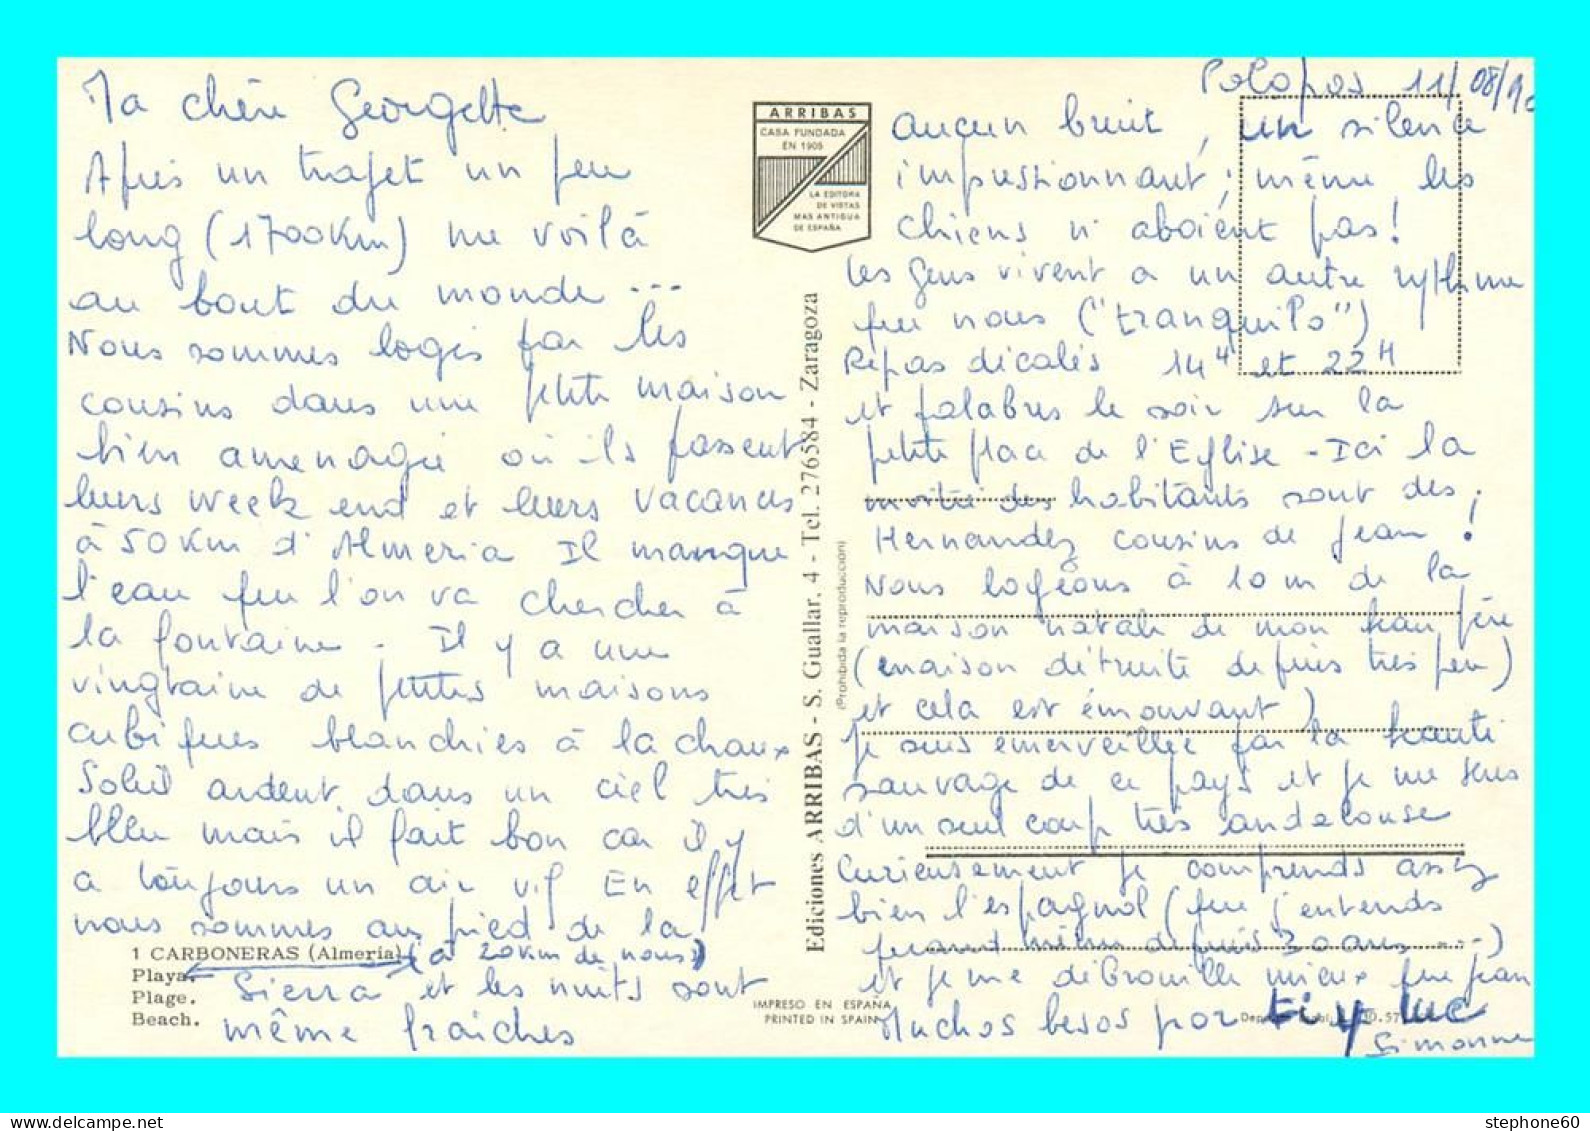 Ma chère Georgette
Après un trajet un peu
long (1700 km) me voilà
au bout du monde ...
Nous sommes logés par les
cousins dans une petite maison
bien aménagée où ils passent
leurs week end et leurs vacances
à 50 km d'Almeria Il manque
l'eau que l'on va chercher à
la fontaine - Il y a une
vingtaine de petites maisons
cubiques blanchies à la chaux
Soleil ardent dans un ciel très
bleu mais il fait bon car il y
a toujours un air vif En effet
nous sommes au pied de la
Sierra et les nuits sont
même fraîches
1 CARBONERAS (Almería)
(à 20 km de nous)
Playa.
Plage.
Beach.
ARRIBAS
CASA FUNDADA
EN 1905
LA EDITORA
DE VISTAS
MAS ANTIGUA
DE ESPAÑA
Ediciones ARRIBAS - S. Guallar, 4 - Tel. 276584 - Zaragoza
(Prohibida la reproducción)
IMPRESO EN ESPAÑA
PRINTED IN SPAIN
Polopos 11/08/9
aucun bruit, un silence
impressionnant ; même les
chiens n'aboient pas !
Les gens vivent a un autre rythme
que nous ("tranquilo")
Repas décalés 14H et 22H
et palabres le soir sur la
petite place de l'Eglise - Ici la
moitié des habitants sont des
Hernandez cousins de Jean !
Nous logeons à 10 m de la
maison natale de mon beau père
(maison détruite depuis très peu)
et cela est émouvant)
Je suis émerveillée par la beauté
sauvage de ce pays et je me sens
d'un seul coup très andalouse
Curieusement je comprends assez
bien l'espagnol (que j'entends
quand même depuis 30 ans ---)
et je me débrouille mieux que Jean
Muchos besos por ti y Luc
Simonne
stephone60